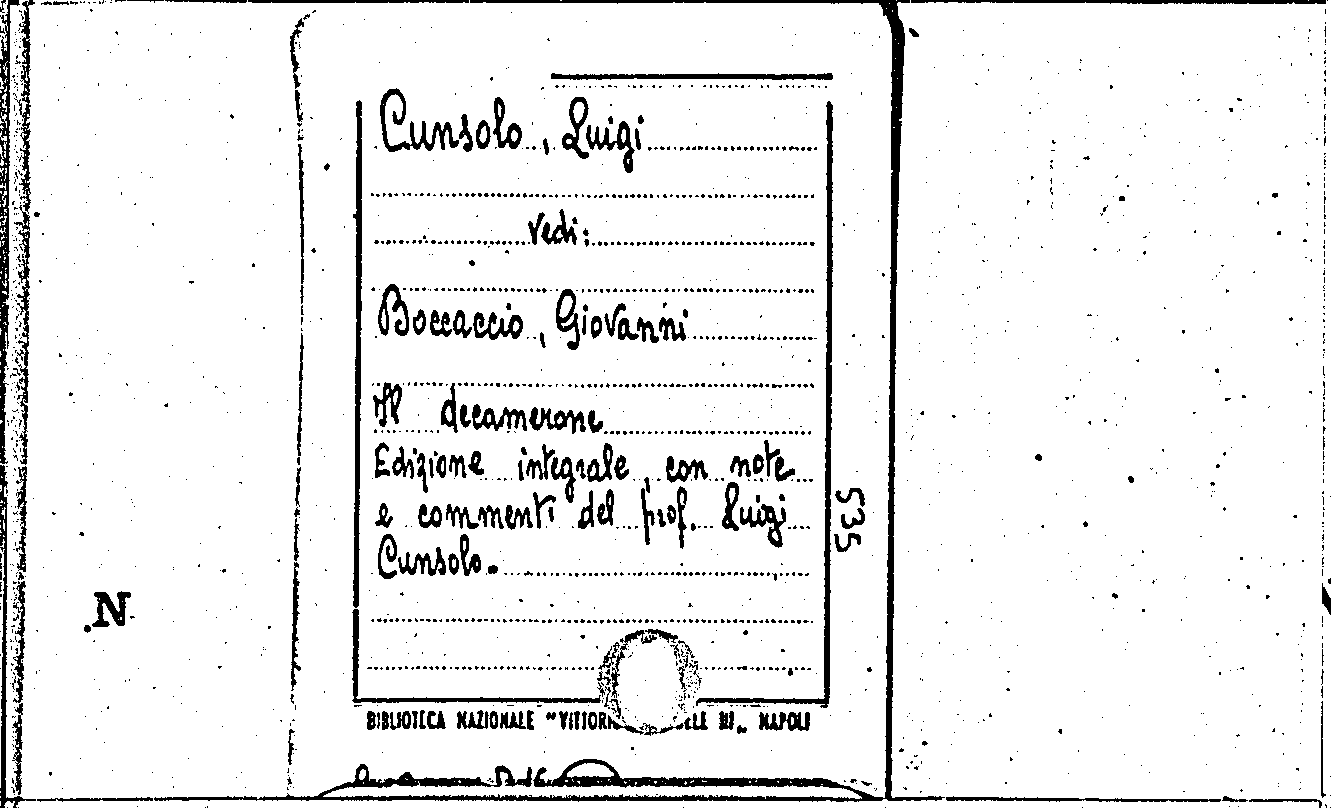 Cunsolo, Luigi
Vedi:
Boccaccio, Giovanni
Il decamerone
Edizione integrale, con note
e commenti del prof. Luigi
Cunsolo.
535
N
BIBLIOTECA NAZIONALE "VITTORI ELE III„ NAPOLI